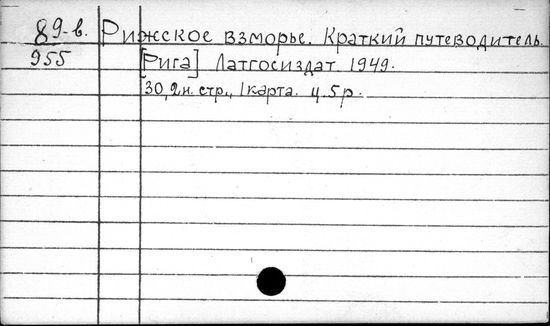 89-в. Рижское взморье. Краткий путеводитель.
955 [Рига] Латгосиздат. 1949.
30, 2 н. стр., 1 карта. ц. 5 р.